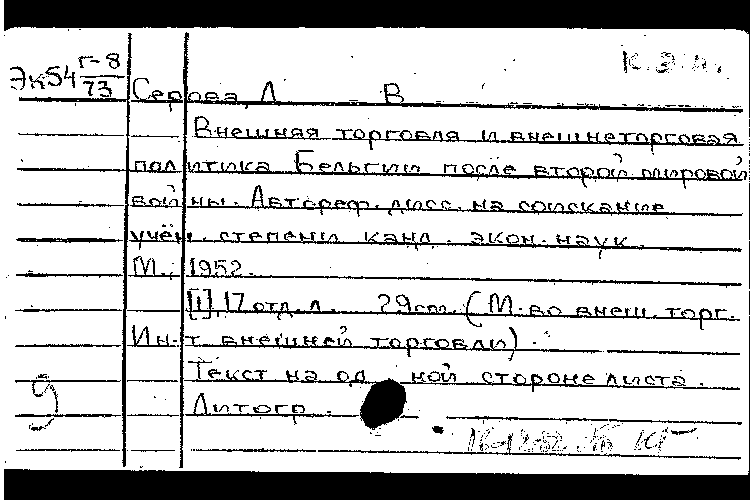 К.Э.Н.
Эк54 г-8/73
Серова, Л В
Внешняя торговля и внешнеторговая
политика Бельгии после второй мировой
войны. Автореф. дисс. на соискание
учён. степени канд. экон. наук.
М., 1952.
[1], 17 отд. л. 29 см. (М-во внеш. торг.
Ин-т внешней торговли).
Текст на одной стороне листа.
Литогр.
9
16-12-52